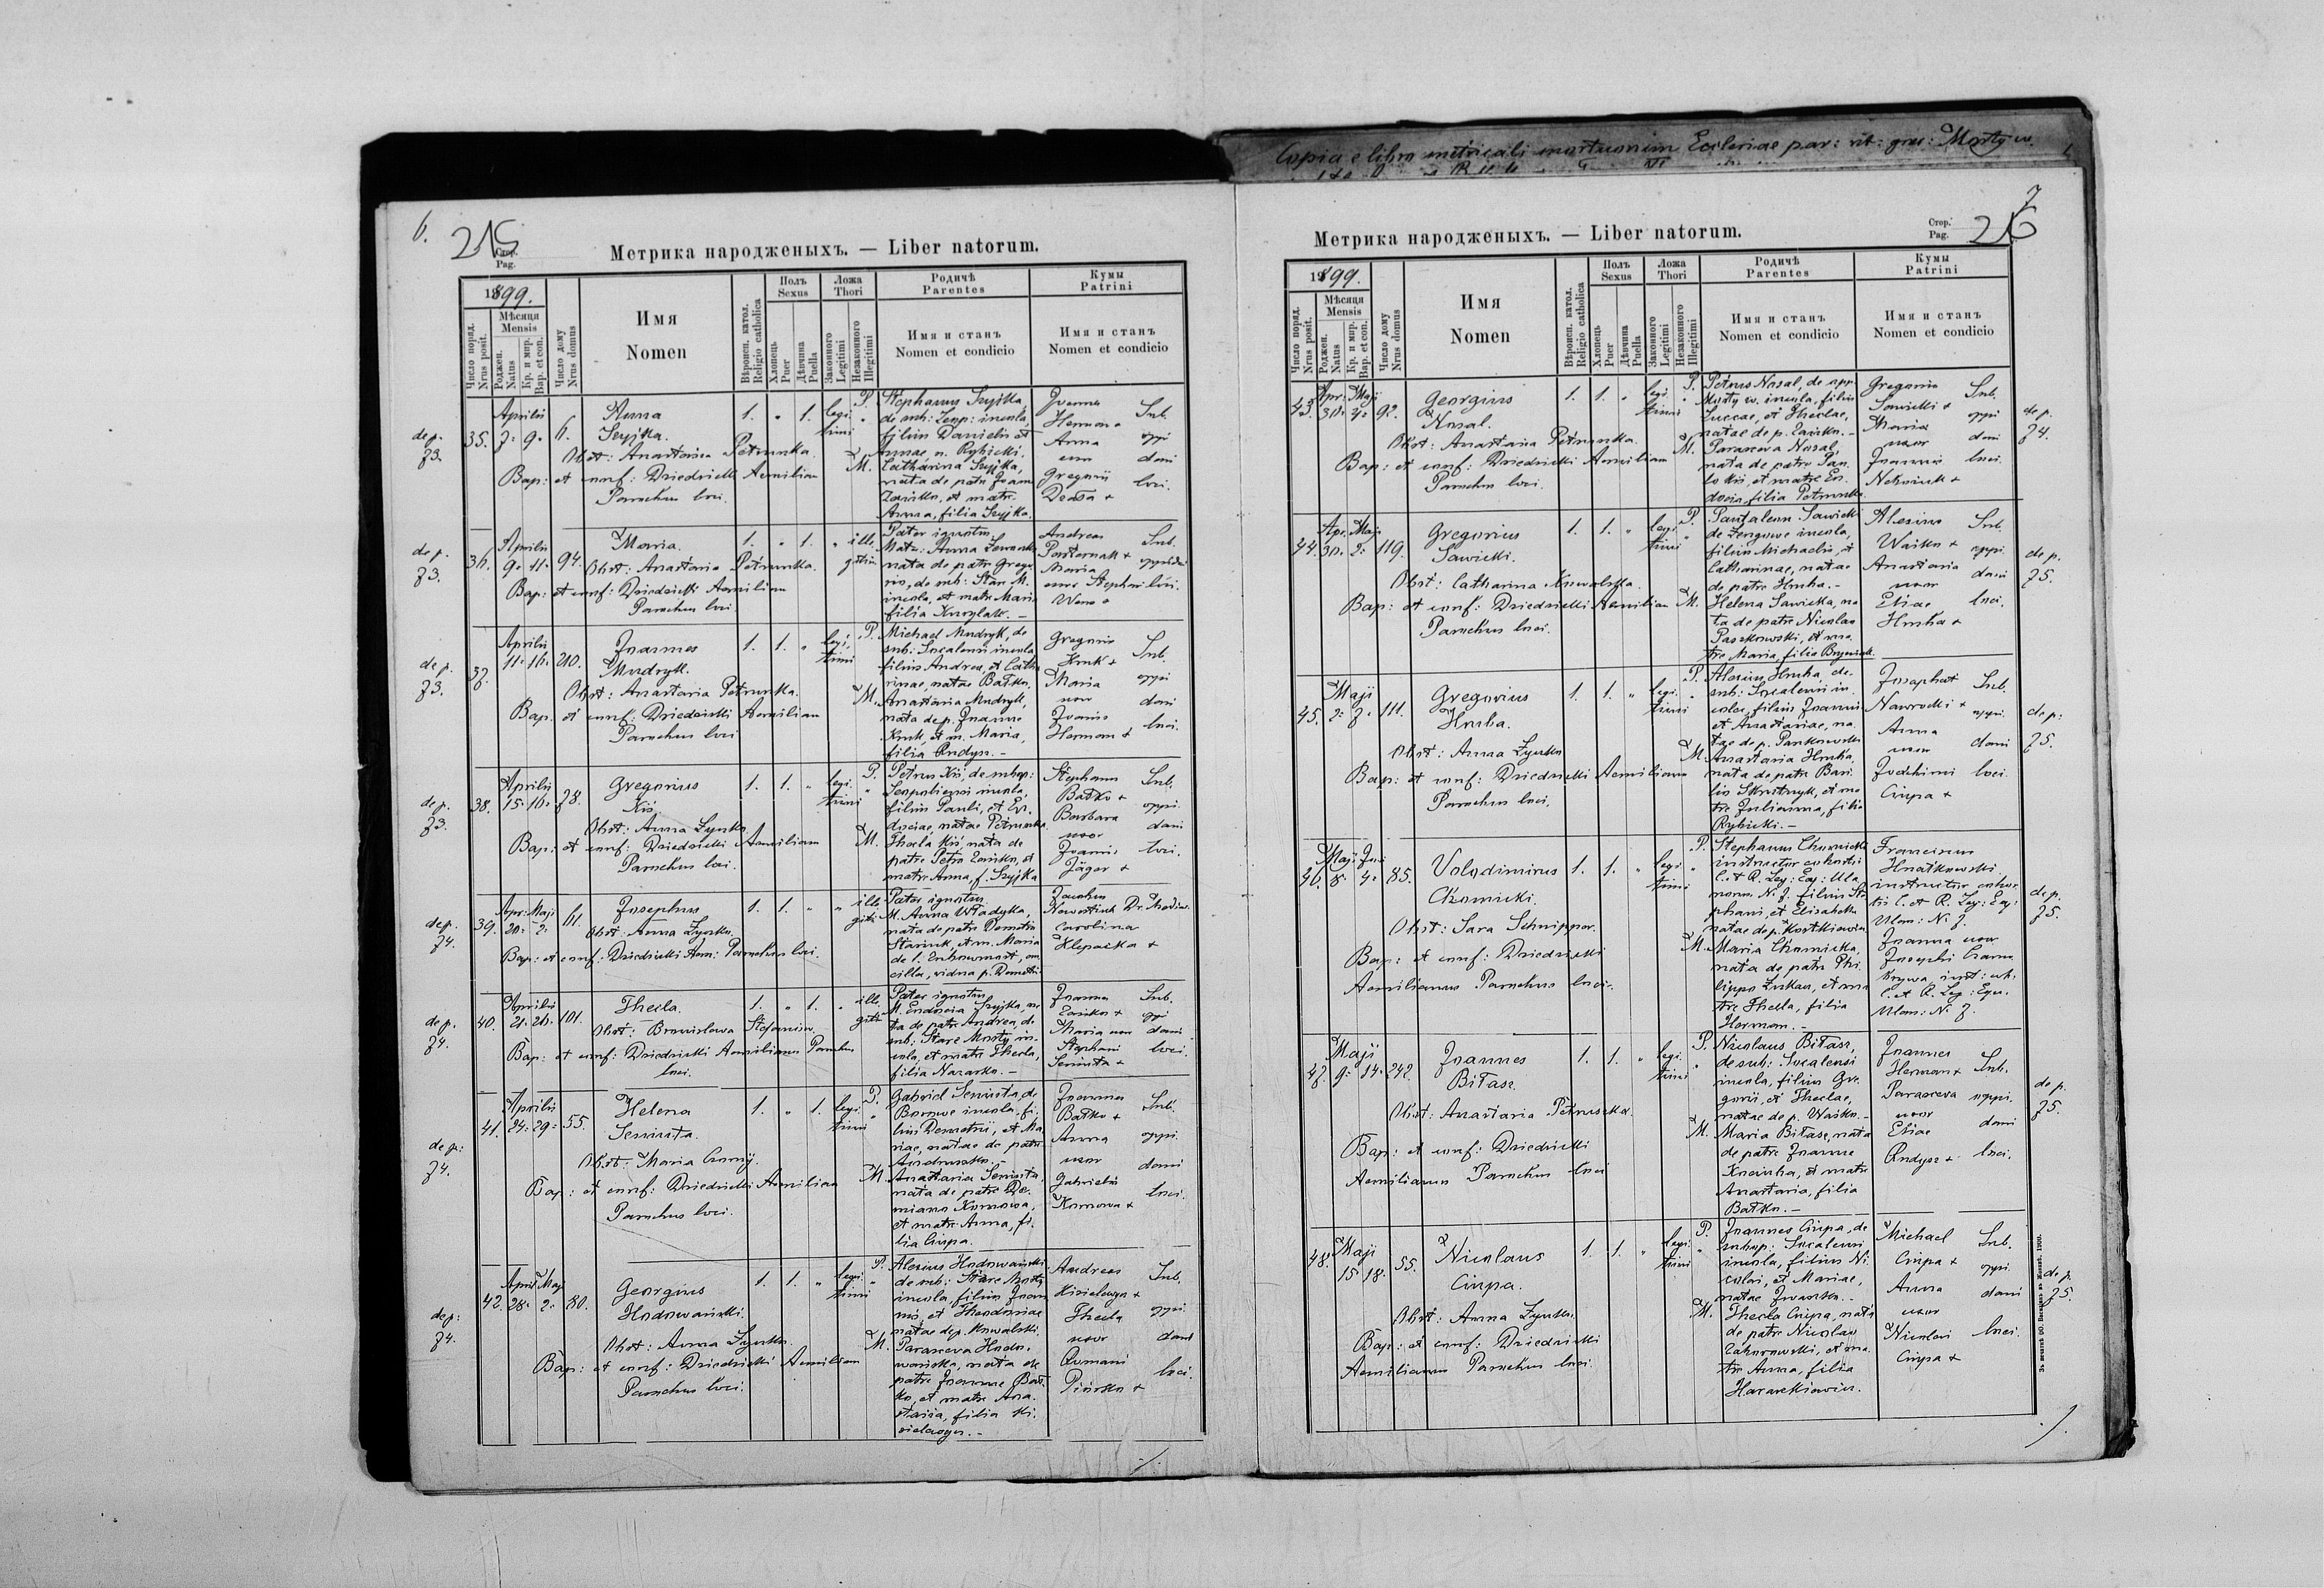 Copia e libro metricali mortuorum Ecclesiae par: rit: gr: Mosty w.
6.
215
Стор.
Pag.
Метрика народженыхъ. — Liber natorum.
1899.
Число поряд.
Nrus posit.
Мѣсяця
Mensis
Роджен.
Natus
Кр. и мир.
Bap. et con.
Число дому
Nrus domus
Имя
Nomen
Вѣроисп. катол.
Religio catholica
Полъ
Sexus
Хлопець
Puer
Дѣвчина
Puella
Ложа
Thori
Законного
Legitimi
Незаконного
Illegitimi
Родичѣ
Parentes
Имя и станъ
Nomen et condicio
Кумы
Patrini
Имя и станъ
Nomen et condicio
de p.
73.
35.
Aprilis
7. 9.
6.
Anna
Szyjka.
Obst: Anastasia Petrunka.
Bap: et conf: Dziedzicki Aemilian
Parochus loci.
1. " 1. legi
timi
P. Stephanus Szyjka,
filius Danielis et
Annae, n. Rybicki.
M. Catharina Szyjka,
nata de patre Joan
et matre
Anna, filia Szyjka.
Joannes
Herman
Anna
uxor
Gregorii
Sub.
oppi
dani
loci.
de p.
73.
36.
Aprilis
9. 11.
94.
Maria.
Obst: Anastasia Petrunka.
Bap: et conf: Dziedzicki Aemilian
Parochus loci.
1. " 1. " ille
gitim
Pater ignotus.
nata de patre Grego
rio, de sub: Star. M.
incola, et matre Maria
Andreas
Pasternak +
Maria
uxor Stephani
Sub.
loci.
de p.
73.
37.
Aprilis
11. 16.
210.
Joannes
Mudryk.
Obst: Anastasia Petrunka.
Bap. et conf: Dziedzicki Aemilian
Parochus loci
1. 1. " legi
timi
P. Michael Mudryk, de
sub: Socalensi incola
filius Andrea, et Catha
rinae, natae Bałko,
M. Anastasia Mudryk,
nata de p. Joanne
Kruk, et m. Maria,
filia Andys. –
Gregorius
Kruk +
Maria
uxor
Joannis
Herman +
Sub.
oppi
dani
loci.
de p.
73.
38.
Aprilis
15. 16.
78.
Gregorius
Kiś
Obst: Anna Zynko
Bap: et conf: Dziedzicki Aemilian
Parochus loci.
1. 1. " legi
timi
P. Petrus Kiś, de subop:
filius Pauli, et Eu
dociae, natae Petrunka
M. Thecla Kiś, nata de
matre Anna, f. Szyjka
Stephanus
Bałko +
Barbara
uxor
Joannis
Jäger +
Sub.
oppi.
dani
loci.
de p.
74.
39.
Apr. Maji
20. 2.
61.
Josephus
Obst: Anna Zynko.
Bap: et conf: Dziedzicki Aem: Parochus loci.
1. 1. " " ille
giti
Pater ignotus.
M. Anna Władyka,
nata de patre Demetrio
m. Maria
Carolina
Klepacka +
de p.
74.
40.
Aprilis
21. 26.
101.
Thecla.
Bap: et conf: Dziedzicki Aemilianus Parochus
loci.
1. " 1. " ille
giti
Pater ignotus
M. Eudocia Szyjka, na
ta de patre Andrea, de
sub: Stare Mosty in
cola, et matre Thecla,
filia Nazarko. –
Joannes
Maria uxor
Stephani
Seniuta +
Sub.
oppi
dani
loci.
de p:
74.
41.
Aprilis
24. 29.
55.
Helena
Seniuta.
Bap: et conf: Dziedzicki Aemilian
Parochus loci.
1. " 1. legi
timi
P. Gabriel Seniuta, de
incola, fi
lius Demetrii, et Ma
riae, natae de patre
Andruszko. –
M. Anastasia Seniuta
nata de patre Da
miano Komowa,
et matre Anna, fi
lia Ciupa.
Joannes
Bałko +
Anna
uxor
Gabrielis
Komowa +
Sub.
oppi.
dani
loci.
de p:
74.
42.
April. Maj
28. 2.
80.
Georgius
Hodowański.
Obst: Anna Zynko.
Bap: et conf: Dziedzicki Aemilian
Parochus loci.
1. 1. " legi
timi
P. Alexius Hodowański
de sub: Stare Mosty
incola, filius Joan
nis, et Theodosiae
natae de p. Kowalski.
M. Parasceva Hodo
wańska, nata de
patre Joanne Bał
ko, et matre Ana
stasia, filia Ki
Andreas
Thecla
uxor
Romani
Sub.
oppi.
dani
loci.
7
216
Стор.
Pag.
Метрика народженыхъ. — Liber natorum.
1899.
Число поряд.
Nrus posit.
Мѣсяця
Mensis
Роджен.
Natus
Кр. и мир.
Bap. et con.
Число дому
Nrus domus
Имя
Nomen
Вѣроисп. катол.
Religio catholica
Полъ
Sexus
Хлопець
Puer
Дѣвчина
Puella
Ложа
Thori
Законного
Legitimi
Незаконного
Illegitimi
Родичѣ
Parentes
Имя и станъ
Nomen et condicio
Кумы
Patrini
Имя и станъ
Nomen et condicio
43.
Apr. Maji
30. 4.
92.
Georgius
Nosal.
Obst: Anastasia Petrunka.
Bap: et conf: Dziedzicki Aemilian
Parochus loci.
1. 1. " legi
timi
P. Petrus Nosal, de opp.
Mosty w. incola, filius
Luccae, et Theclae,
M. Parasceva Nosal,
nata de patre Pau
lo Kiś, et matre Eu
docia, filia Petrunka.
Gregorius
Sawicki +
Maria
uxor
Joannis
Sub.
oppi
dani
loci.
de p.
74.
44.
Apr. Maji
30. 2.
119.
Gregorius
Sawicki.
Obst: Catharina Kowalska.
Bap: et conf: Dziedzicki Aemilian
Parochus loci.
1. 1. " legi
timi
P. Pantaleon Sawicki
incola,
filius Michaelis, et
Catharinae, natae
de patre Hruba. –
M. Helena Sawicka, na
ta de patre Nicolao
Paszkowski, et ma
tre Maria, filia
Alexius
Waśko +
Anastasia
uxor
Eliae
Hruba +
Sub.
oppi.
dani
loci.
de p.
75.
45.
Maji
2. 7.
111.
Gregorius
Hruba.
Obst: Anna Zynko
Bap: et conf: Dziedzicki Aemilianus
Parochus loci.
1. 1. " legi
timi
P. Alexius Hruba, de
sub: Socalensi in
cola, filius Joannis
et Anastasiae, na
tae de p. Pankowski
M. Anastasia Hruba,
nata de patre Basi
lio Skrutnyk, et ma
tre Julianna, filia
Rybicki. –
Josaphat
Nawrocki +
Anna
uxor
Joachimi
Ciupa +
Sub.
oppi.
dani
loci.
de p:
75.
46.
Maji Juni
8. 4.
85.
Volodimirus
Chomicki.
Obst: Sara Schnipper.
Bap: et conf: Dziedzicki
Aemilianus Parochus loci.
1. 1. " legi
timi
P. Stephanus Chomicki
instructor cohortis
C. et R. Leg: Eq: Ula
norum N. 7. filius Ste
phani, et Elisabetha
M. Maria Chomicka,
nata de patre Phi
lippo Żukan, et ma
tre Thecla, filia
Herman. –
Franciscus
Hnatkowski
instructor cohor
tis C. et R. Leg: Eq:
Ulan: N. 7.
Joanna uxor
Josephi
C. et R. Leg: Equ.
Ulan: N. 7.
de p.
75.
47.
Maji
9. 14.
242.
Joannes
Biłasz.
Obst: Anastasia Petruszka.
Bap: et conf: Dziedzicki
Aemilianus Parochus loci
1. 1. " legi
timi
P. Nicolaus Bitasz,
de sub: Socalensi
incola, filius Gre
gorii, et Theclae,
natae de p. Waśko. –
M. Maria Bitasz, nata
de patre Joanne
et matre
Anastasia, filia
Bałko. –
Joannes
Herman +
Parasceva
uxor
Eliae
Andysz +
Sub.
oppi.
dani
loci.
de p.
75.
48.
Maji
15. 18.
55.
Nicolaus
Ciupa.
Obst: Anna Zynko.
Bap: et conf: Dziedzicki
Aemilianus Parochus loci.
1. 1. " legi
timi
P. Joannes Ciupa, de
subop: Socalensi
incola, filius Ni
colai, et Mariae,
natae Iwaszko. –
M. Thecla Ciupa, nata
de patre Nicolao
et ma
tre Anna, filia
Michael
Ciupa +
Anna
uxor
Nicolai
Ciupa +
Sub.
oppi.
dani
loci.
de p.
75.